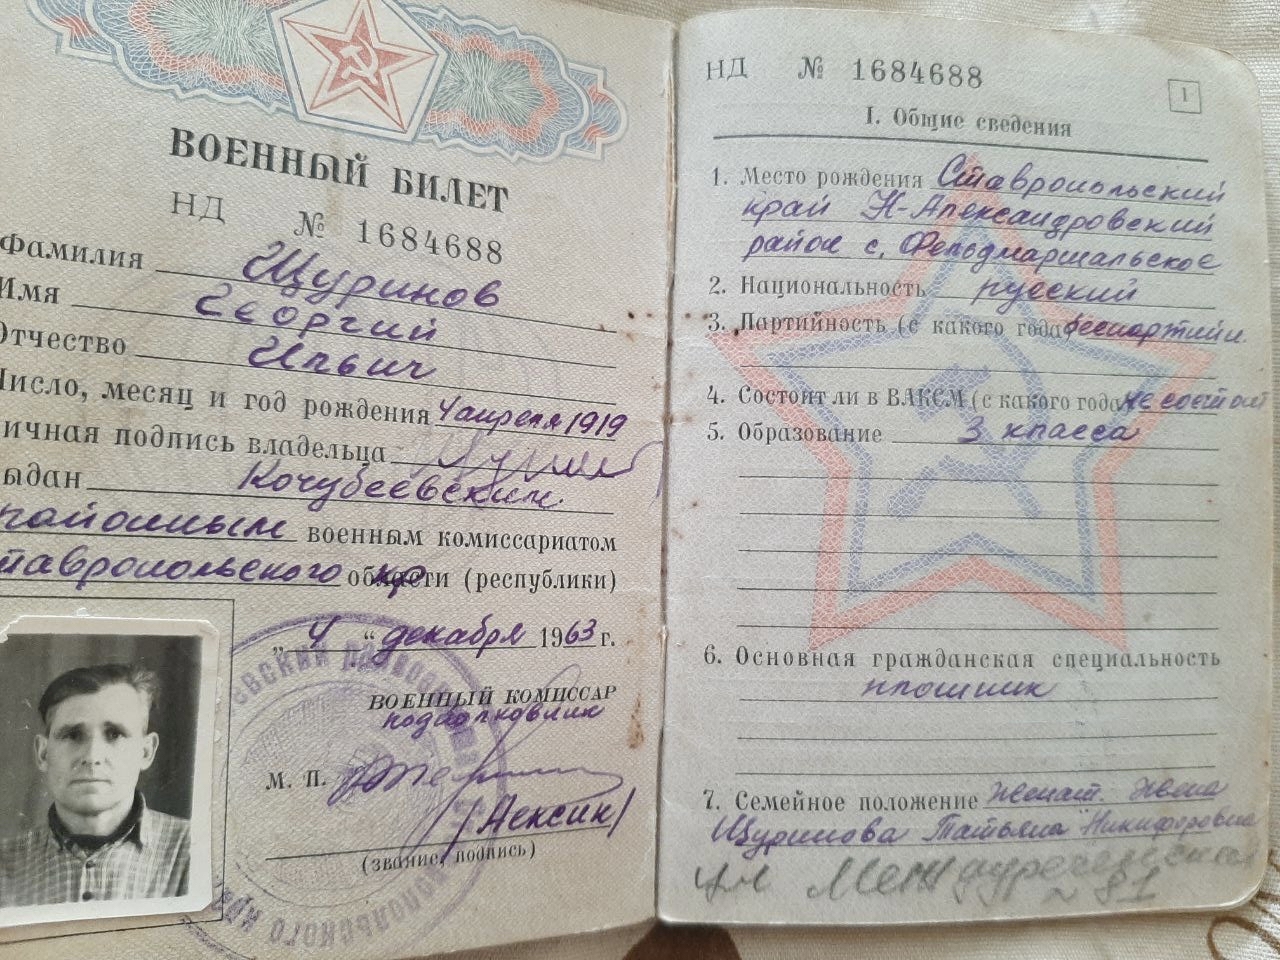 ВОЕННЫЙ БИЛЕТ
НД № 1684688
Фамилия Щуринов
Имя Георгий
Отчество Ильич
Число, месяц и год рождения 4 апреля 1919
ичная подпись владельца
ыдан Кочубеевским
районным военным комиссариатом
тавропольского кр области (республики)
„ 4 “ декабря 1963 г.
ВОЕННЫЙ КОМИССАР
подполковник
М. П.
(звание, подпись)
НД № 1684688
1
I. Общие сведения
1. Место рождения Ставропольский
край Н-Александровский
район с. Фельдмаршальское
2. Национальность русский
3. Партийность (с какого года) беспартийн.
4. Состоит ли в ВЛКСМ (с какого года) не состоит
5. Образование 3 класса
6. Основная гражданская специальность
7. Семейное положение женат. жена
Щуринова Татьяна Никифоровна
81